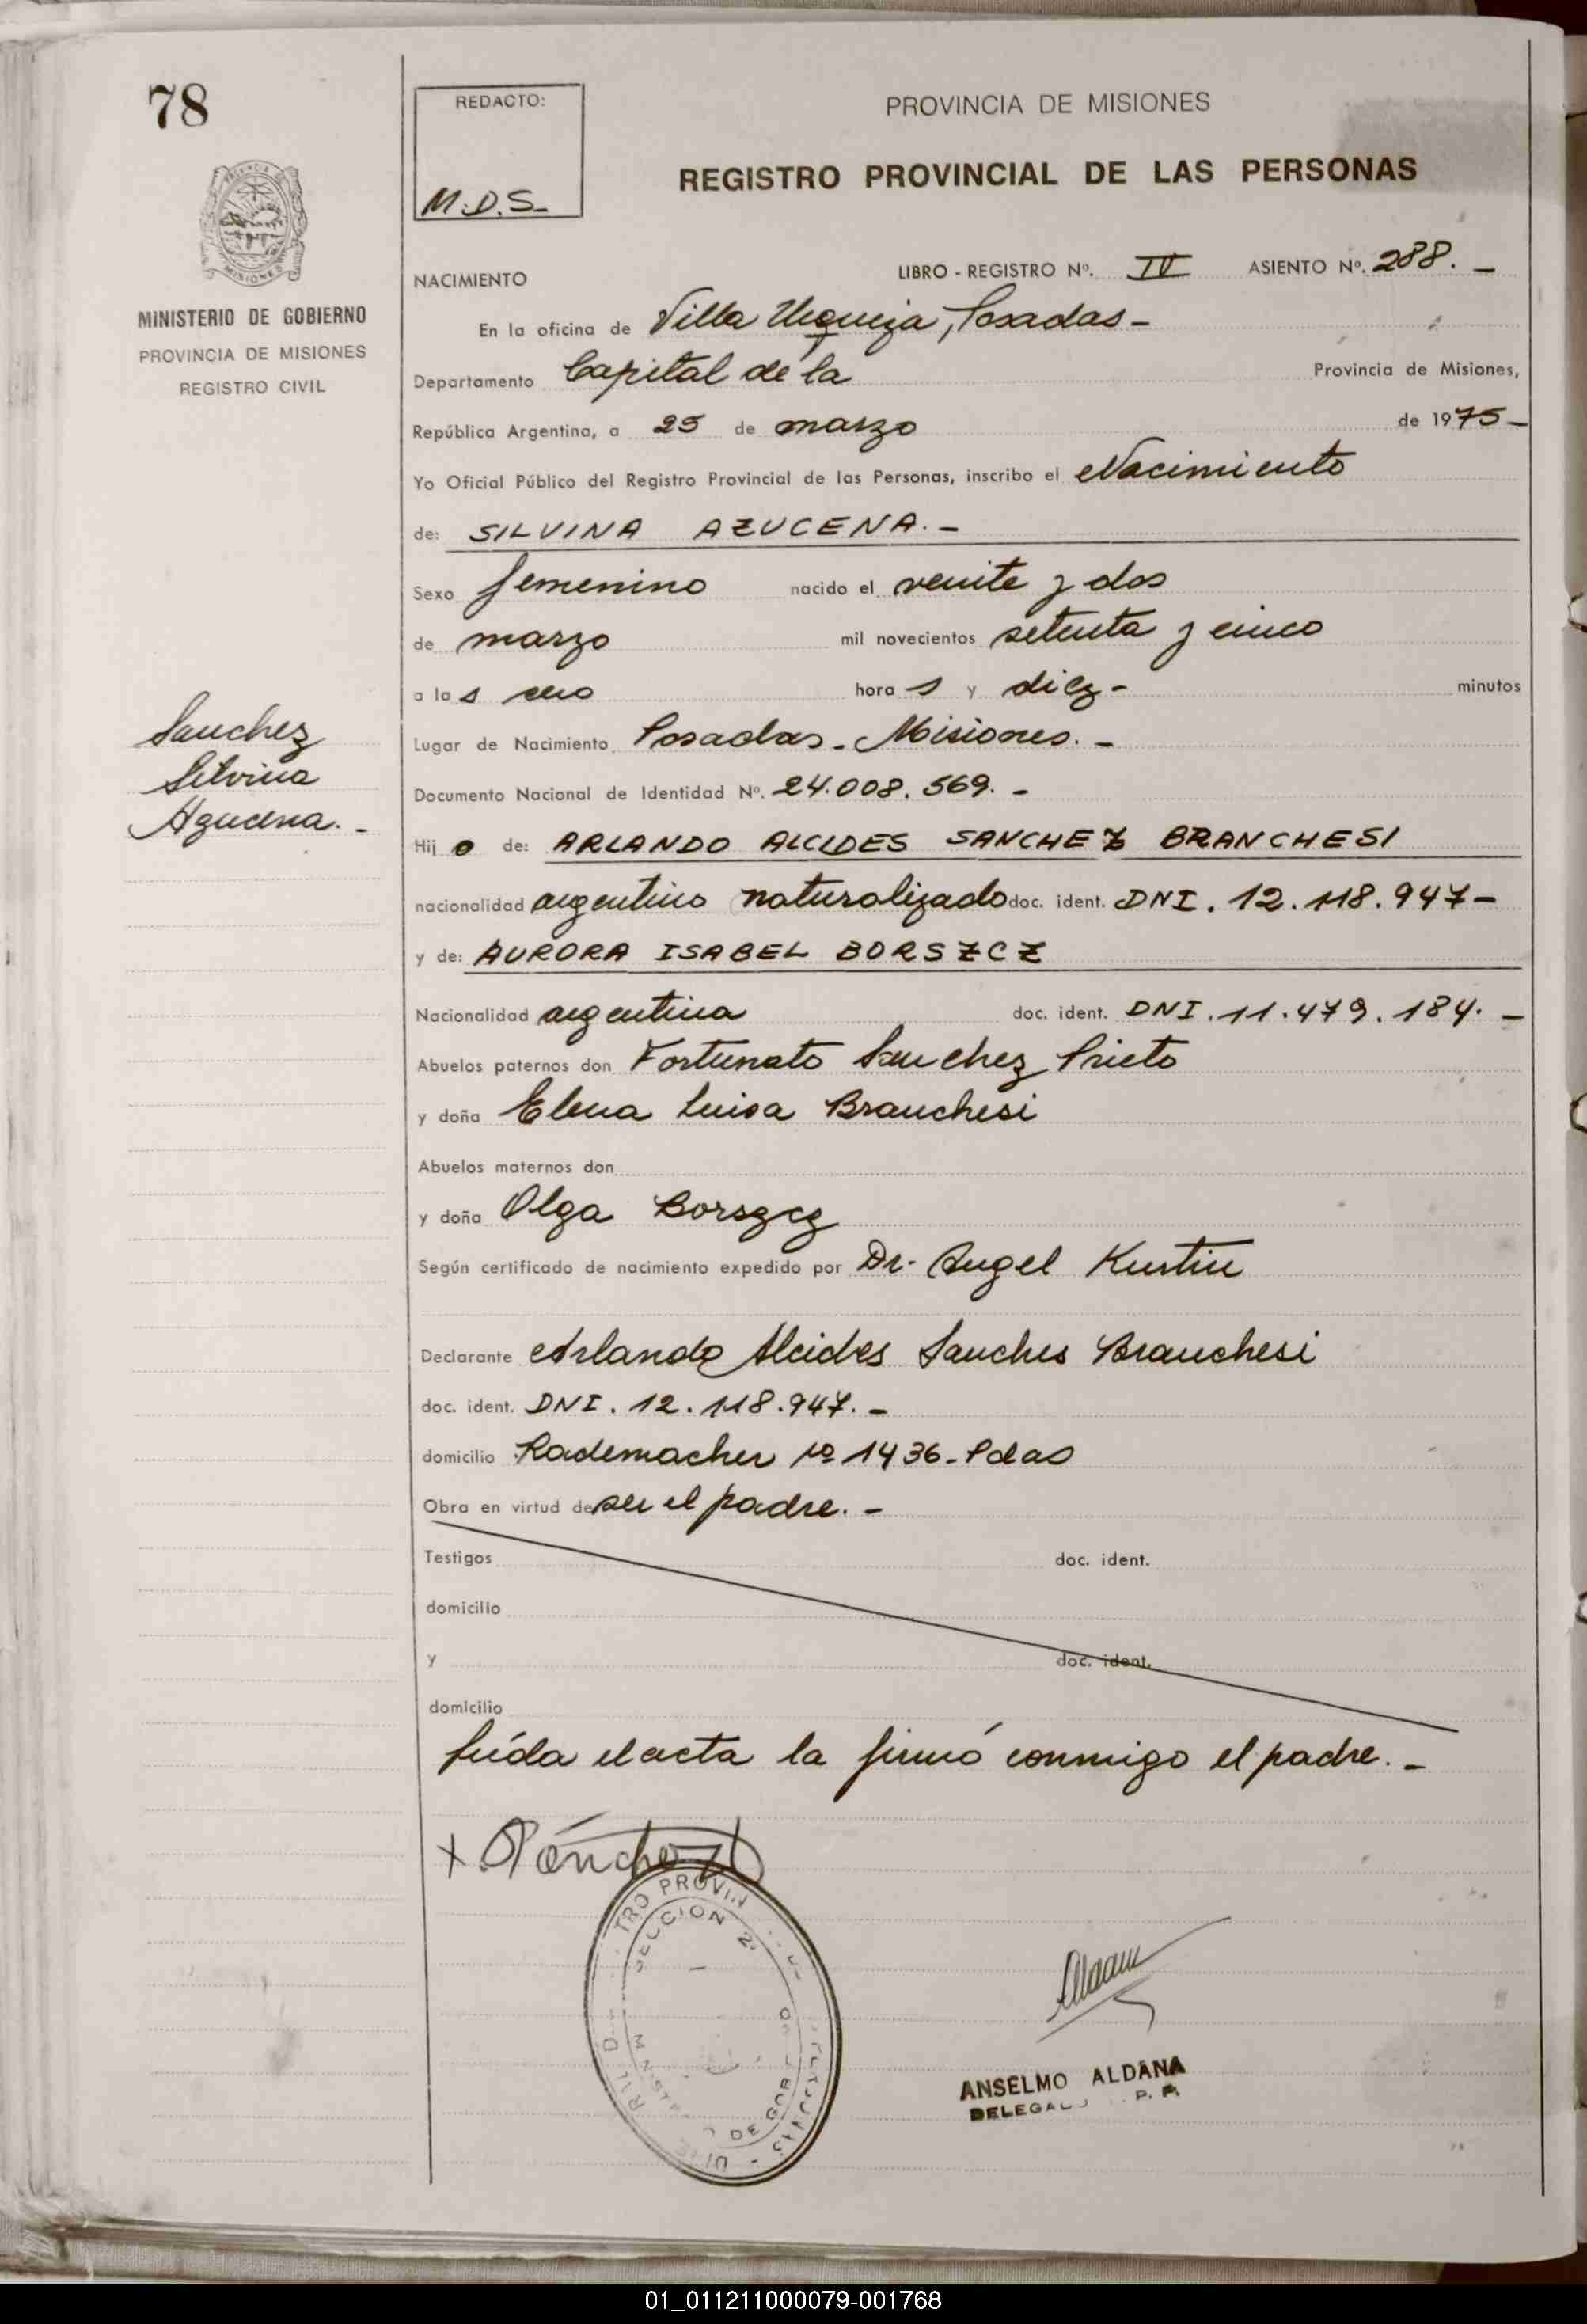 78
REDACTO:
M.D.S.-
PROVINCIA DE MISIONES
REGISTRO PROVINCIAL DE LAS PERSONAS
MISIONES
MINISTERIO DE GOBIERNO
PROVINCIA DE MISIONES
REGISTRO CIVIL
NACIMIENTO
LIBRO - REGISTRO Nº. IV ASIENTO Nº. 288. -
En la oficina de Villa Urquiza, Posadas -
Departamento Capital de la Provincia de Misiones,
República Argentina, a 25 de marzo de 1975 -
Yo Oficial Público del Registro Provincial de las Personas, inscribo el Nacimiento
de: SILVINA AZUCENA. -
Sexo femenino nacido el veinte y dos
de marzo mil novecientos setenta y cinco
a las cero horas y diez - minutos
Lugar de Nacimiento Posadas - Misiones. -
Sanchez
Silvina
Azucena. -
Documento Nacional de Identidad Nº. 24.008.569. -
Hij o de: ARLANDO ALCIDES SANCHEZ BRANCHESI
nacionalidad argentino naturalizado doc. ident. DNI. 12.118.947 -
y de: AURORA ISABEL BORSZCZ
Nacionalidad argentina doc. ident. DNI. 11.479.184. -
Abuelos paternos don Fortunato Sanchez Prieto
y doña Elena Luisa Branchesi
Abuelos maternos don
y doña Olga Borszcz
Según certificado de nacimiento expedido por Dr. Angel Kustin
Declarante Arlando Alcides Sanches Branchesi
doc. ident. DNI. 12.118.947. -
domicilio Rademacher Nº 1436 - Pdas
Obra en virtud de ser el padre. -
Testigos doc. ident.
domicilio
y doc. ident.
domicilio
Leída el acta la firmó conmigo el padre. -
X Sánchez
TRO PROVIN
SECCION 2ª
DE GOB
ANSELMO ALDANA
P. P.
01_011211000079-001768